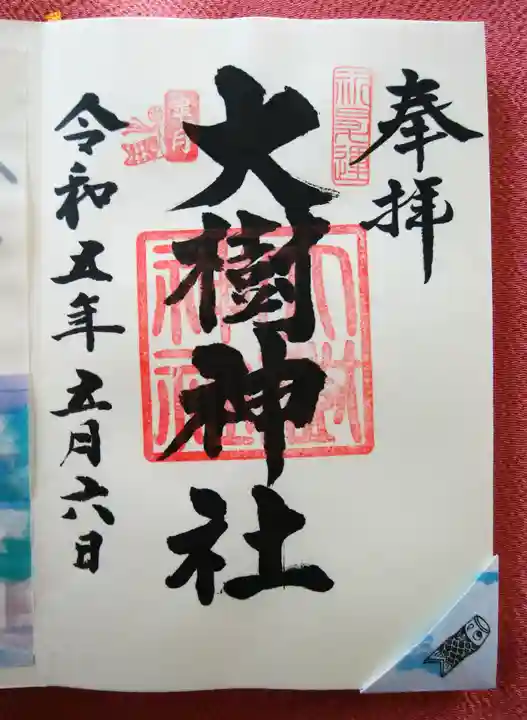 奉拝
大樹神社
令和五年五月六日
皐月